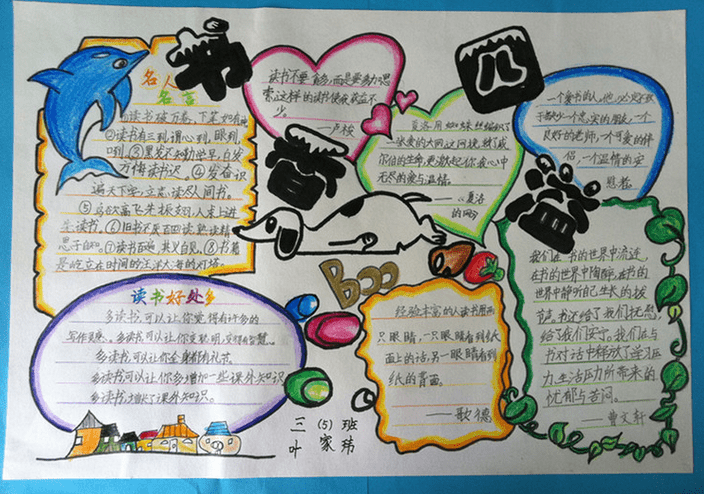 书
香
四
溢
名人
名言
①读书破万卷,下笔如有神
②读书有三到,谓心到,眼到
口到。③黑发不知勤学早,白发
方悔读书迟。④发奋识
遍天下字,立志读尽人间书。
⑤鸟欲高飞先振翅,人求上进
先读书。⑥旧书不厌百回读,熟读精
思子自知。⑦读书百遍,其义自见。⑧书籍
是屹立在时间的汪洋大海的灯塔。
读书不要贪多,而是要多加思
索,这样的读书使我获益不
少。
——卢梭
夏洛用蜘蛛丝编织了
一张爱的大网,这网挽救了威
尔伯的生命,更激起你我心中
无尽的爱与温情。
——《夏洛
的网》
一个爱书的人,他必定不致
于缺少一个忠实的朋友,一个
良好的老师,一个可爱的伴
侣,一个温情的安
慰者。
Boo
读书好处多
多读书,可以让你觉得有许多的
写作灵感。多读书,可以让你变聪明,变得有智慧
多读书,可以让你全身都有礼节。
多读书可以让你多增加一些课外知识
多读书,增长了课外知识。
经验丰富的人读书用两
只眼睛,一只眼睛看到纸
面上的话,另一眼睛看到
纸的背面。
——歌德
我们在书的世界中流连,
在书的世界中陶醉,在书的
世界中静听自己生长的拔
节声。书还给了我们抚慰,
给了我们安宁。我们在与
书对话中释放了学习压
力,生活压力所带来的
忧郁与苦闷。
——曹文轩
三(5)班
叶家玮